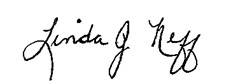 Linda J Neff